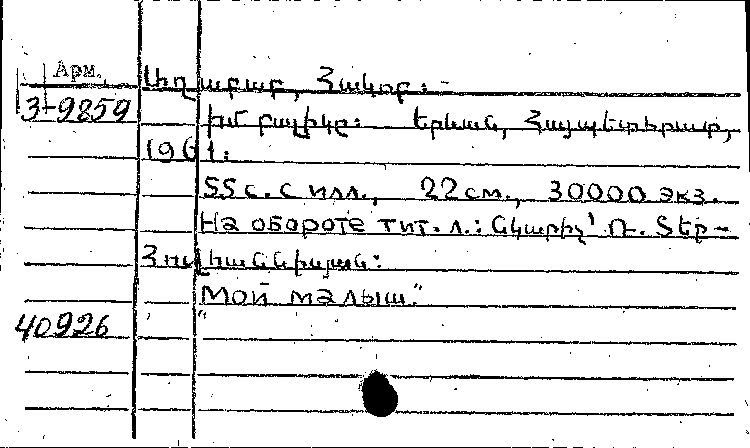 Арм.
Աղաբաբ, Հակոբ։ -
3-9859
Իմ բալիկը։ Երևան, Հայպետհրատ,
1961։
55 с. с илл., 22 см., 30000 экз.
На обороте тит. л.: Նկարիչ՝ Ռ. Տեր-
Հովհաննիսյան։
"Мой малыш."
40926